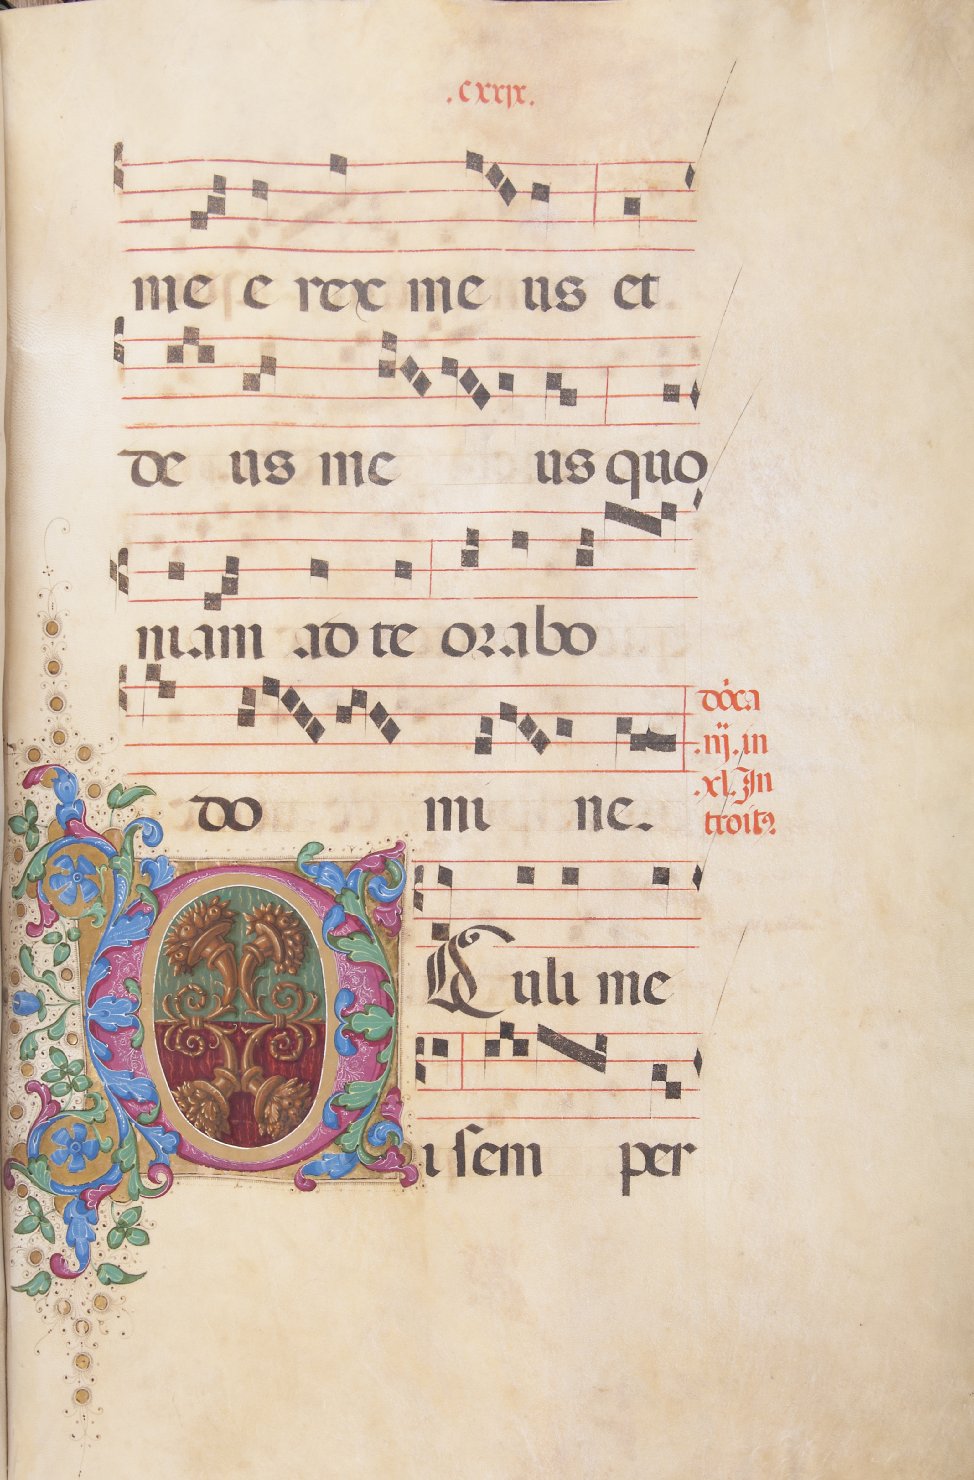 .cxxix.
me e rex me us et
de us me us quo
niam ad te orabo
do mi ne.
dōca
.iij. in
.xl. In
troitꝰ
O Culi me
i sem per